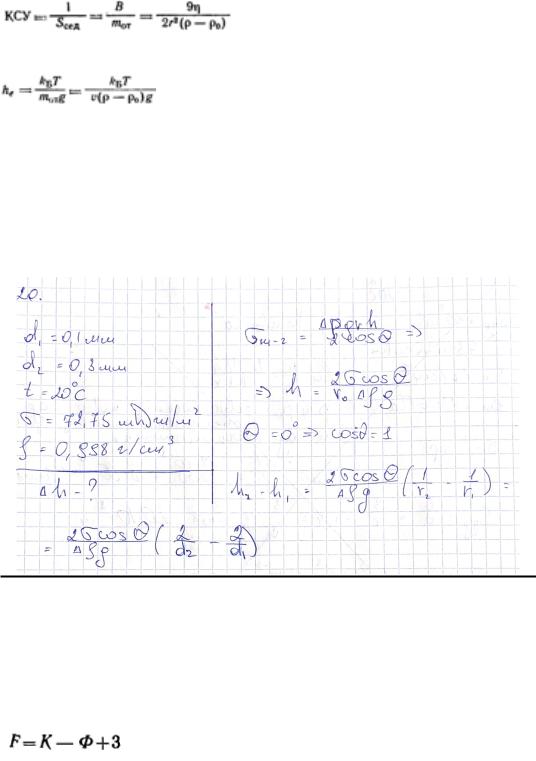 КСУ = 1/Sсед = B/mот = 9η/2r²(ρ − ρ₀)
hε = kБT/mотg = kБT/v(ρ − ρ₀)g
20.
d₁ = 0,1 мм
d₂ = 0,3 мм
t = 20°C
σ = 72,75 мДж/м²
ρ = 0,998 г/см³
Δh - ?
σж-г = Δρgrh/2cosθ =>
=> h = 2σcosθ/r₀Δρg
θ = 0° => cosθ = 1
h₂ - h₁ = 2σcosθ/Δρg (1/r₂ - 1/r₁) =
= 2σcosθ/Δρg (2/d₂ - 2/d₁)
F = K — Ф + 3